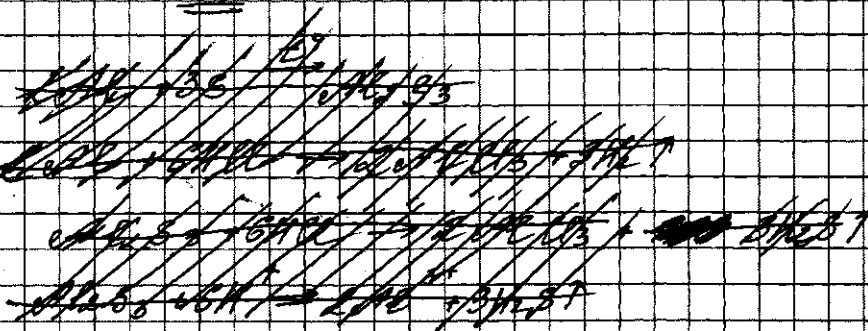 2Al + 3S t° Al2S3
2Al + 6HCl → 2AlCl3 + 3H2↑
Al2S3 + 6HCl → 2AlCl3 + 3H2S↑
Al2S3 + 6H+ → 2Al + 3H2S↑